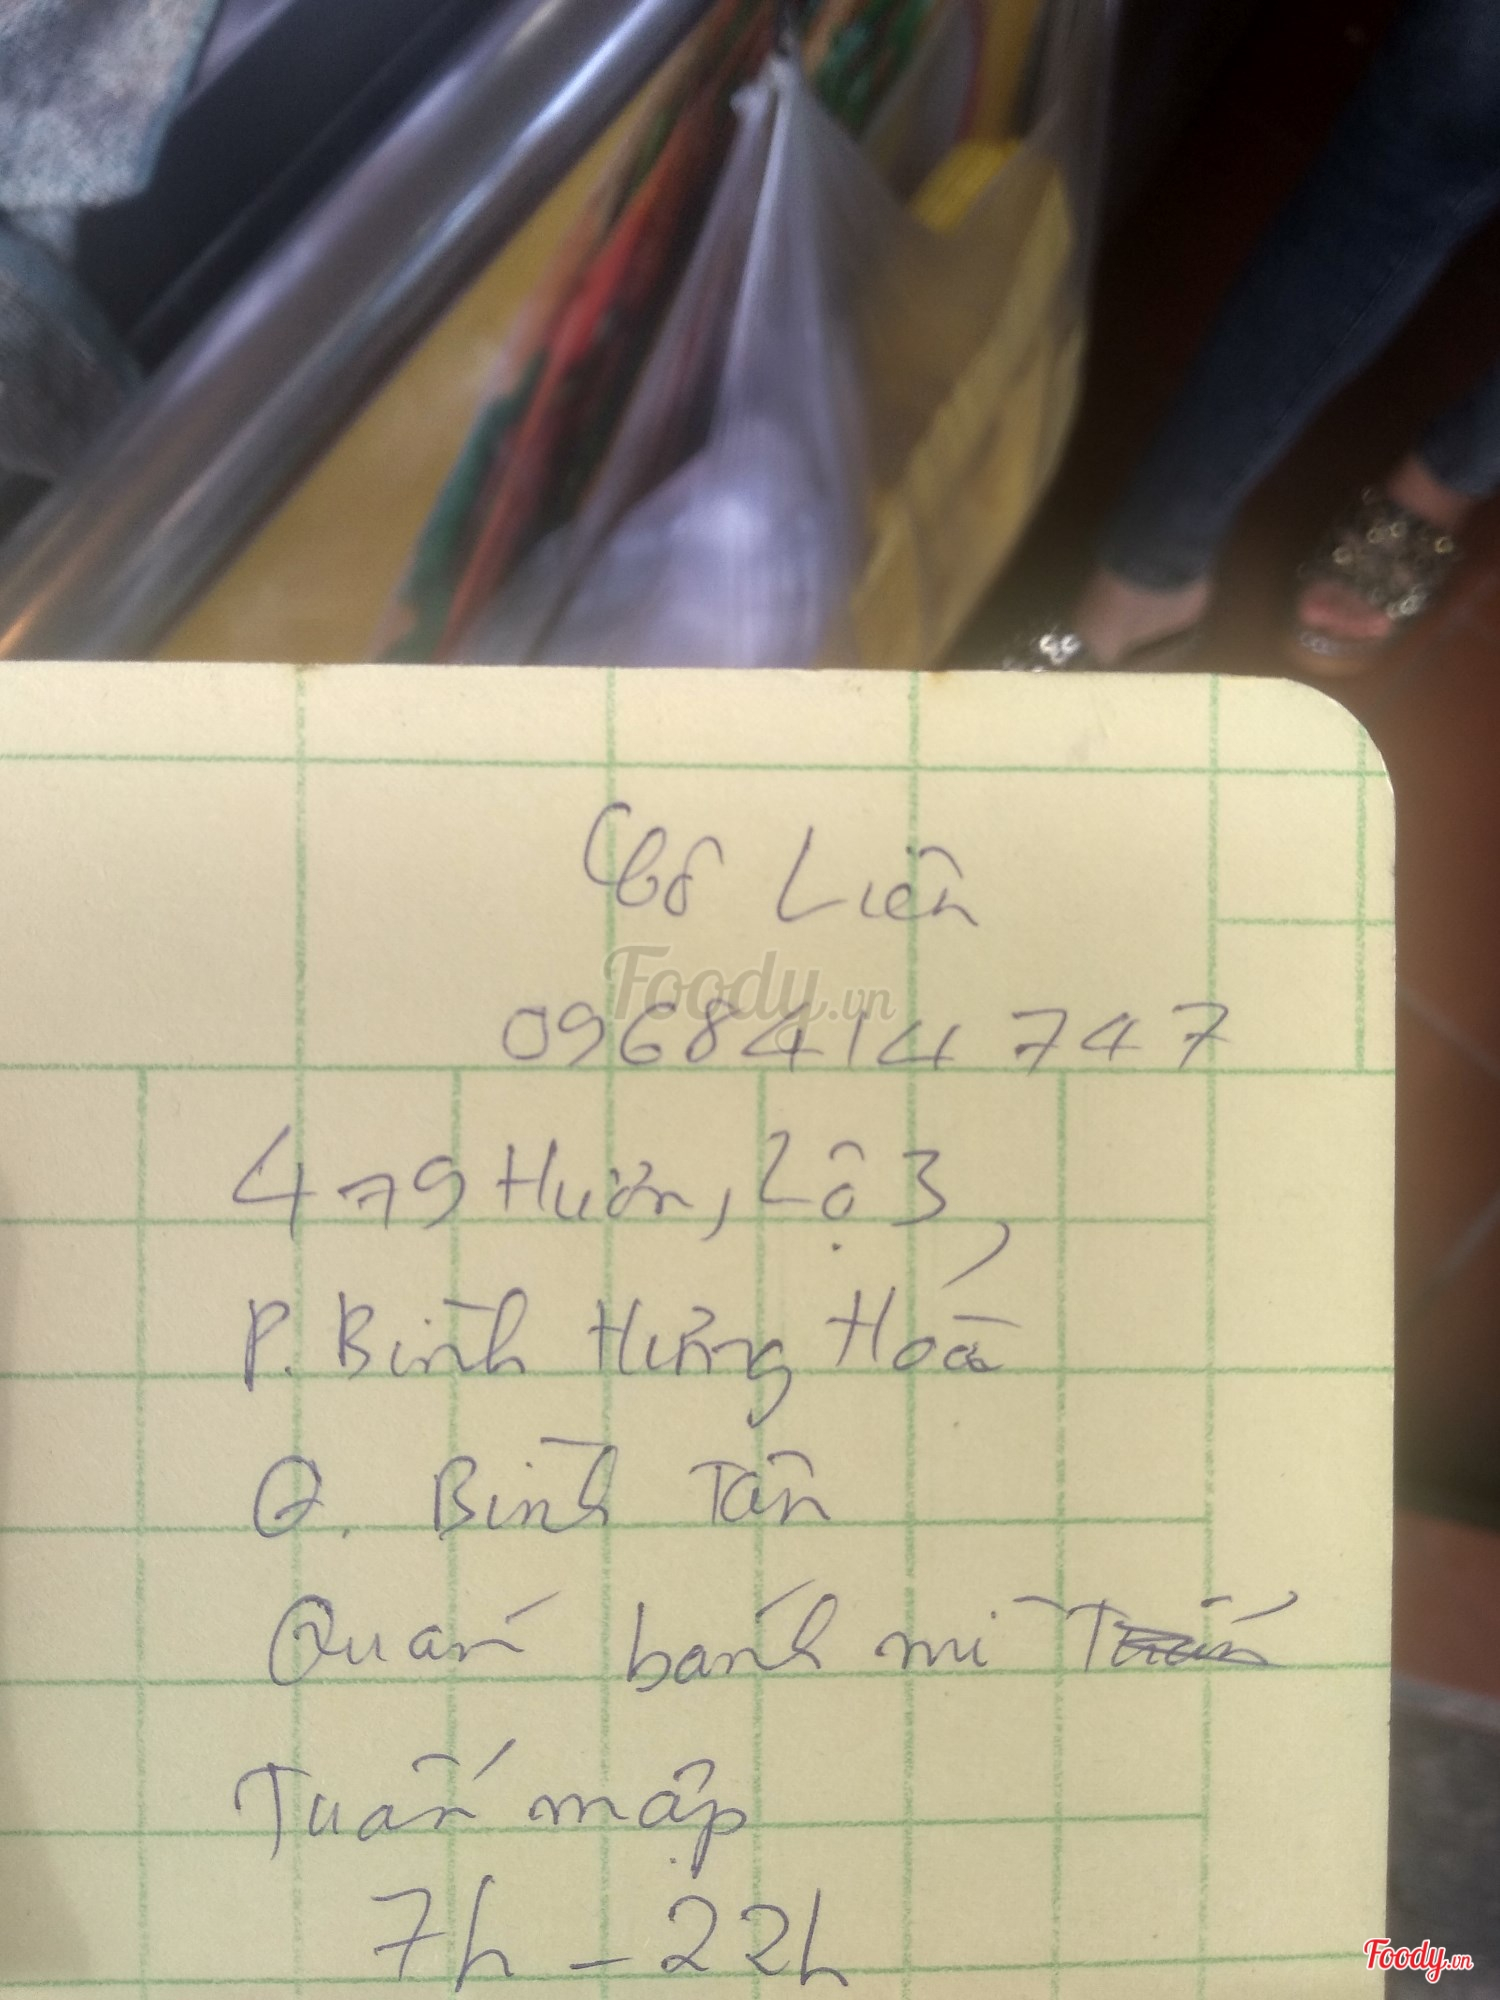 Cô Liên
Foody.vn
0968414747
479 Hươn, Lộ 3,
P. Bình Hưng Hoà
Q. Bình Tân
Quán bánh mì
Tuấn mập
7h - 22h
Foody.vn